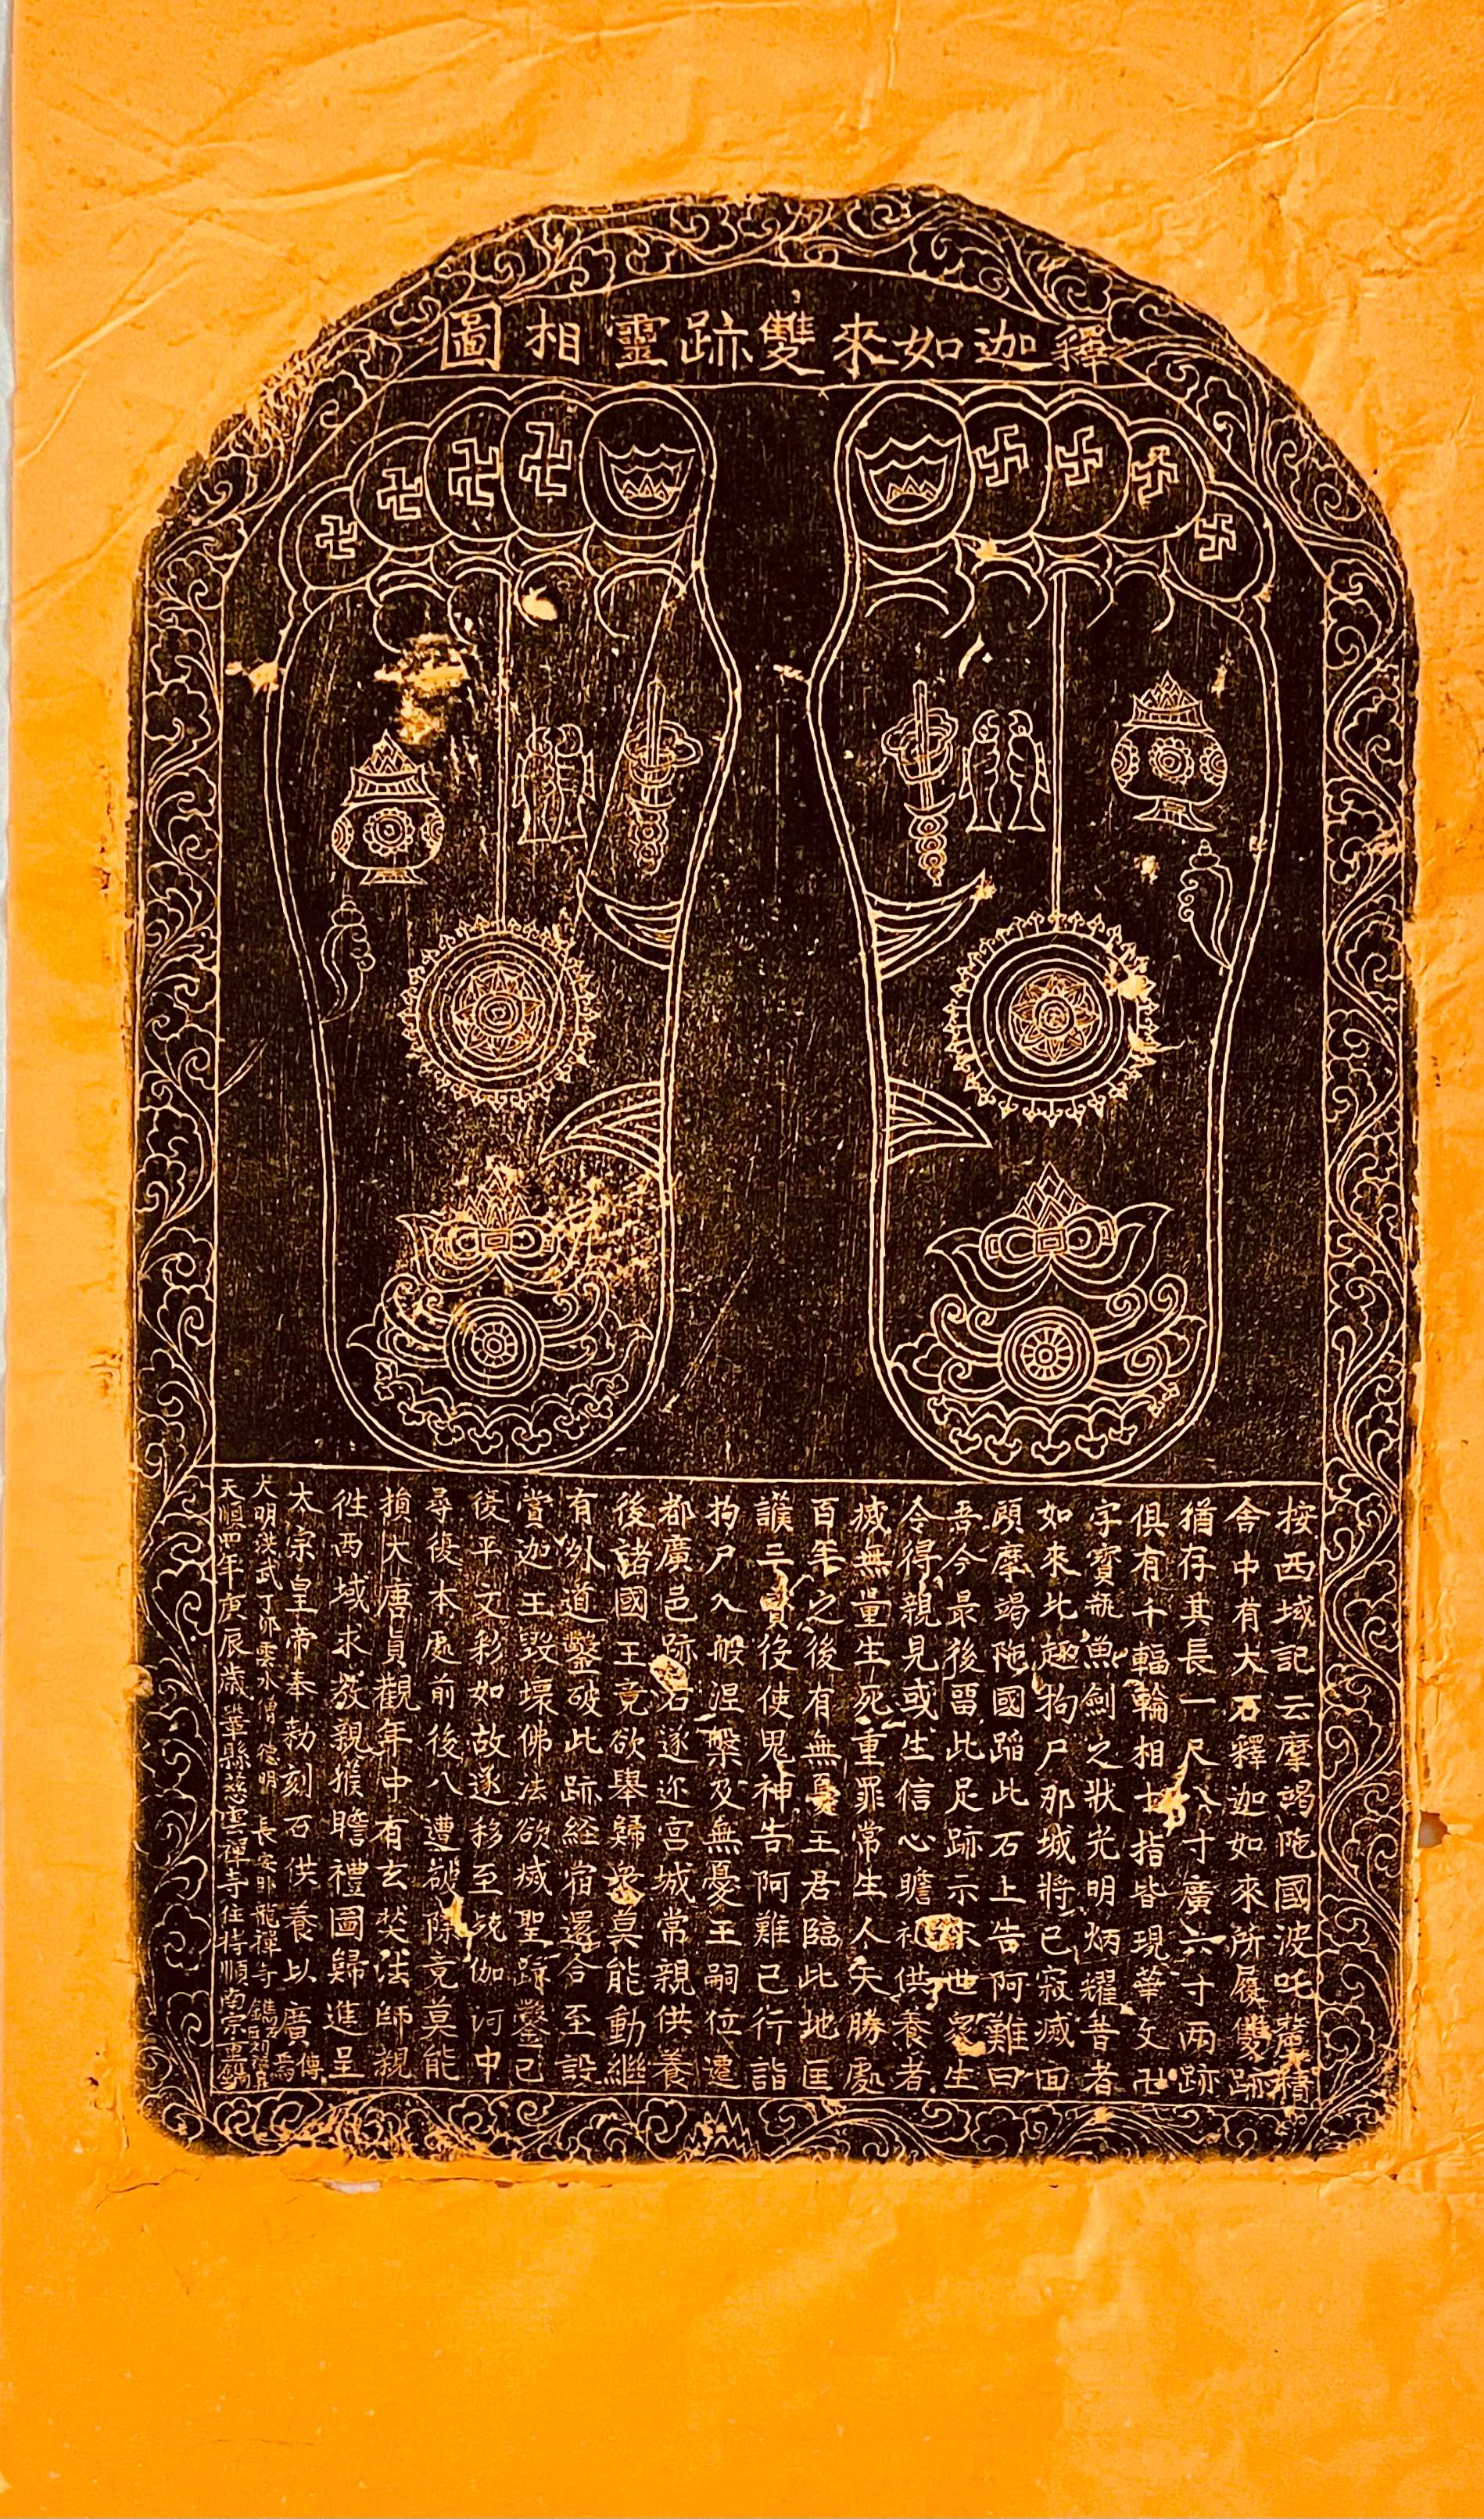 釋迦如來雙跡靈相圖
按西域記云摩竭陁國波吒釐精
舍中有大石釋迦如來所履雙跡
猶存其長一尺八寸廣六寸兩跡
俱有千輻輪相十指皆現華文卍
字寶瓶魚劍之狀光明炳耀昔者
如來北趣拘尸那城將已寂滅面
顧摩竭陁國蹈此石上告阿難曰
吾今最後留此足跡示末世眾生
令得親見或生信心瞻礼供養者
滅無量生死重罪常生人天勝處
百年之後有無憂王君臨此地匡
護三寶役使鬼神告阿難已行詣
拘尸入般涅槃及無憂王嗣位遷
都廣邑跡石遂迩宮城常親供養
後諸國王竟欲舉歸衆莫能動繼
有外道鑿破此跡經宿還合至設
賞迦王毀壞佛法欲滅聖跡鑿已
復平文彩如故遂移至殑伽河中
尋復本處前後八遭欲除竟莫能
損大唐貞觀年中有玄奘法師親
徃西域求教親獲瞻禮圖歸進呈
太宗皇帝奉勑刻石供養以廣傳焉
大明洪武丁卯雲水僧德明長安卧龍禪寺鐫
天順四年庚辰歲鞏縣慈雲禪寺住持順南宗重鐫